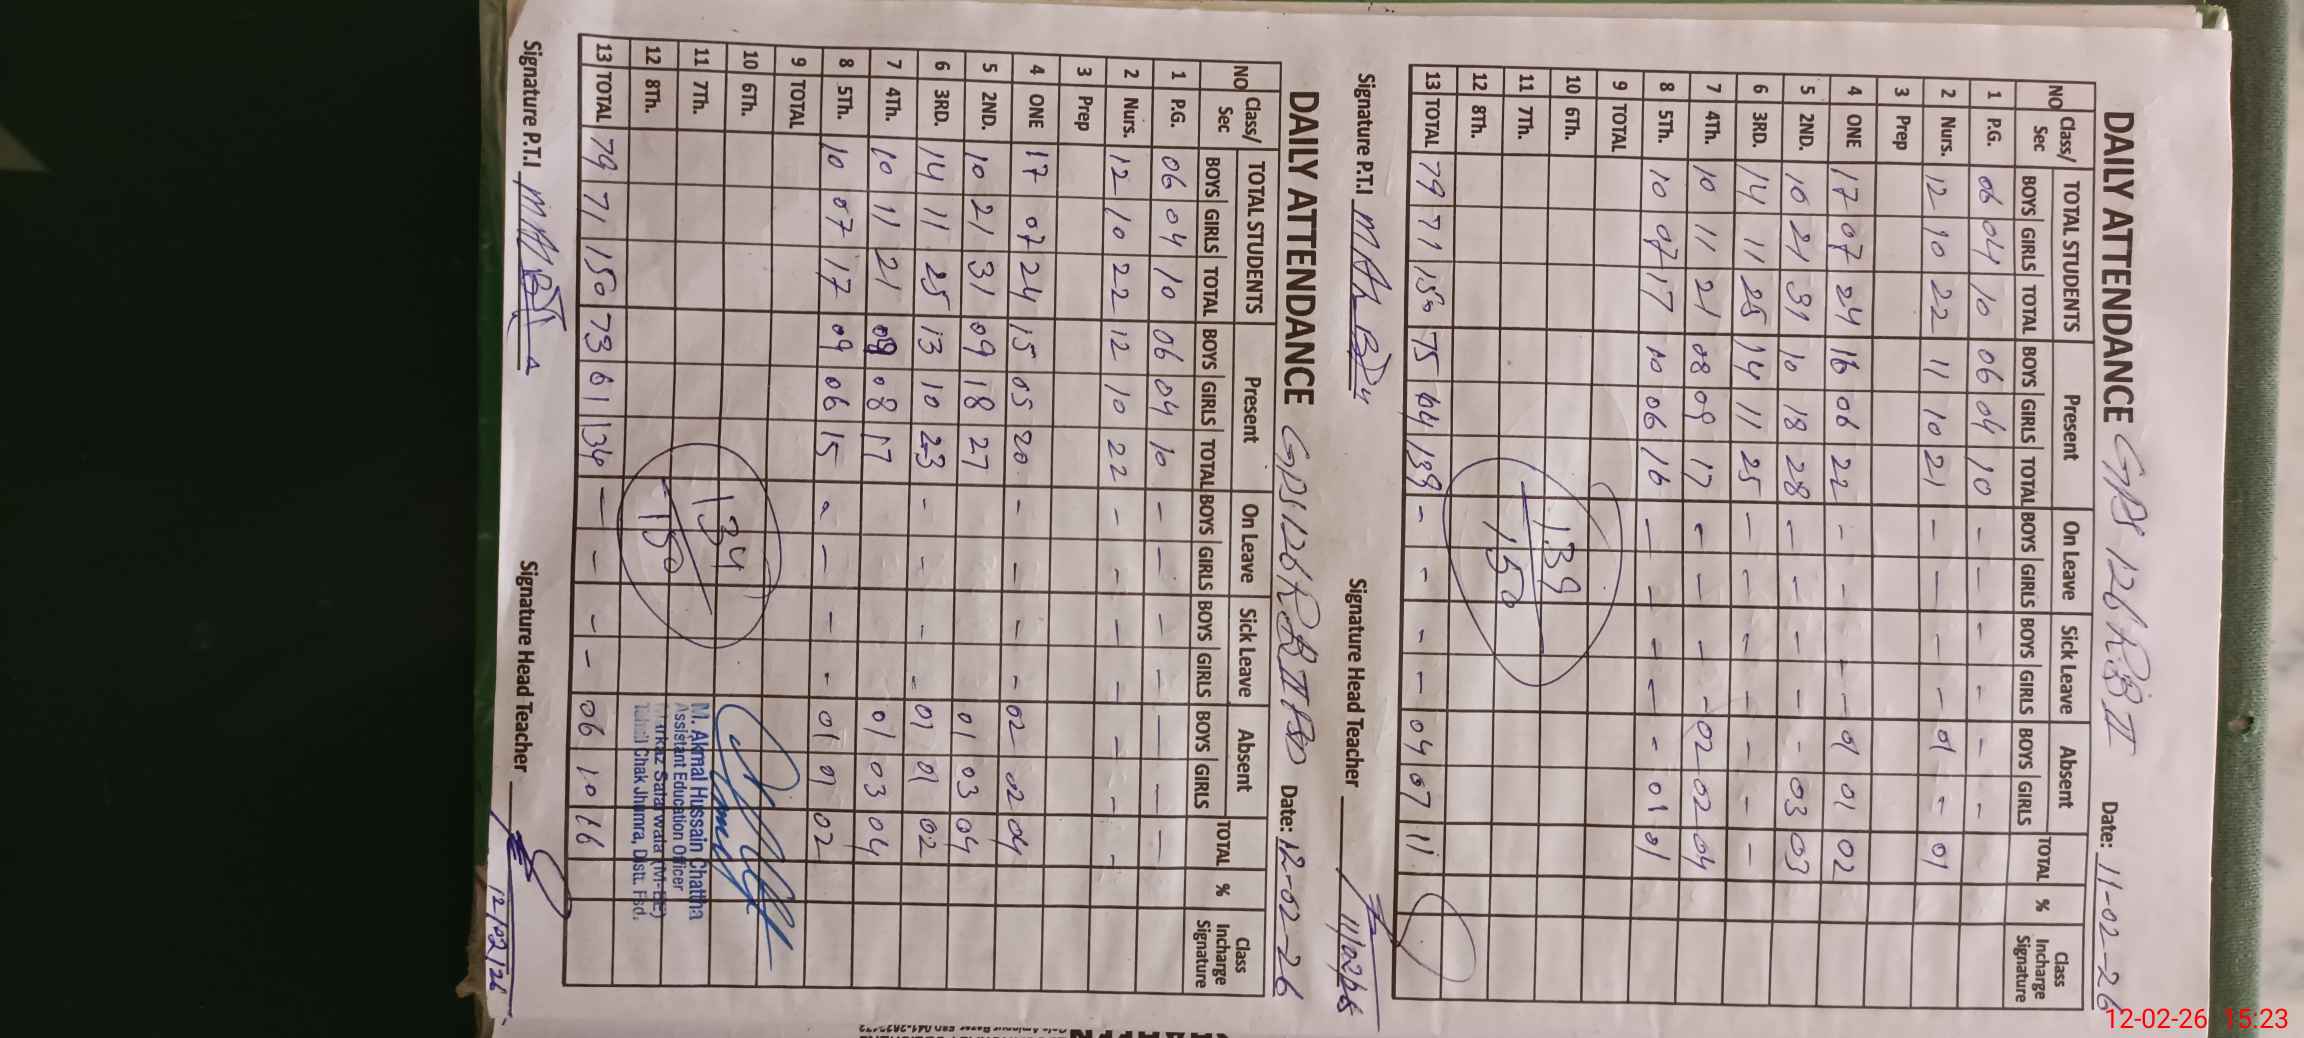 DAILY ATTENDANCE GPS 126 RB II Date: 11-02-26
NO Class/Sec TOTAL STUDENTS Present On Leave Sick Leave Absent TOTAL % Class Incharge Signature
BOYS GIRLS TOTAL BOYS GIRLS TOTAL BOYS GIRLS BOYS GIRLS BOYS GIRLS
1 P.G. 06 04 10 06 04 10 - - - - - -
2 Nurs. 12 10 22 11 10 21 - - - - 01 - 01
3 Prep
4 ONE 17 07 24 16 06 22 - - - - 01 01 02
5 2ND. 10 21 31 10 18 28 - - - - - 03 03
6 3RD. 14 11 25 14 11 25 - - - - - - -
7 4Th. 10 11 21 08 09 17 - - - - 02 02 04
8 5Th. 10 07 17 10 06 16 - - - - - 01 01
9 TOTAL
10 6Th.
11 7Th.
12 8Th.
139
150
13 TOTAL 79 71 150 75 64 139 - - - - 04 07 11
Signature P.T.I Signature Head Teacher 11/02/26
DAILY ATTENDANCE GPS 126 RB II FSD Date: 12-02-26
NO Class/Sec TOTAL STUDENTS Present On Leave Sick Leave Absent TOTAL % Class Incharge Signature
BOYS GIRLS TOTAL BOYS GIRLS TOTAL BOYS GIRLS BOYS GIRLS BOYS GIRLS
1 P.G. 06 04 10 06 04 10 - - - - - - -
2 Nurs. 12 10 22 12 10 22 - - - - - - -
3 Prep
4 ONE 17 07 24 15 05 20 - - - - 02 02 04
5 2ND. 10 21 31 09 18 27 01 03 04
6 3RD. 14 11 25 13 10 23 - - - - 01 01 02
7 4Th. 10 11 21 09 08 17 01 03 04
8 5Th. 10 07 17 09 06 15 - - - - 01 01 02
9 TOTAL
10 6Th.
11 7Th.
12 8Th.
134
150
M. Akmal Hussain Chattha
Assistant Education Officer
Markaz Satarwala (M-EE)
Tehsil Chak Jhumra, Distt. Fsd.
13 TOTAL 79 71 150 73 61 134 - - - - 06 10 16
Signature P.T.I Signature Head Teacher 12/02/26
12-02-26 15:23